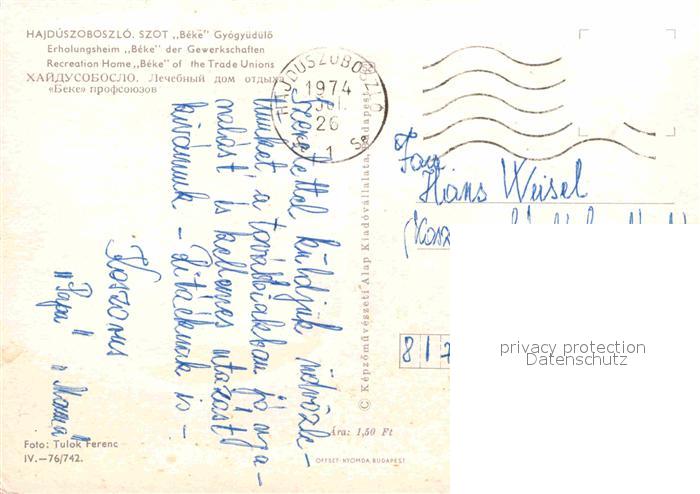 HAJDÚSZOBOSZLÓ. SZOT „Béke" Gyógyüdülő
Erholungsheim „Béke" der Gewerkschaften
Recreation Home „Béke" of the Trade Unions
ХАЙДУСОБОСЛО. Лечебный дом отдыха
«Беке» профсоюзов
HAJDÚSZOBOSZLÓ
1974
JÚL.
26
1
Szeretettel küldjük üdvözle-
tünket a továbbiakban jó nya-
ralást és kellemes utazást
kívánunk - Ditáéknak is -
Koszorús
"Papa" "Mama"
Foto: Tulok Ferenc
IV.—76/742.
© Képzőművészeti Alap Kiadóvállalata, Budapest
Ára: 1,50 Ft
OFFSET-NYOMDA, BUDAPEST
Fam
Hans Weisel
(Kosz
817
privacy protection
Datenschutz